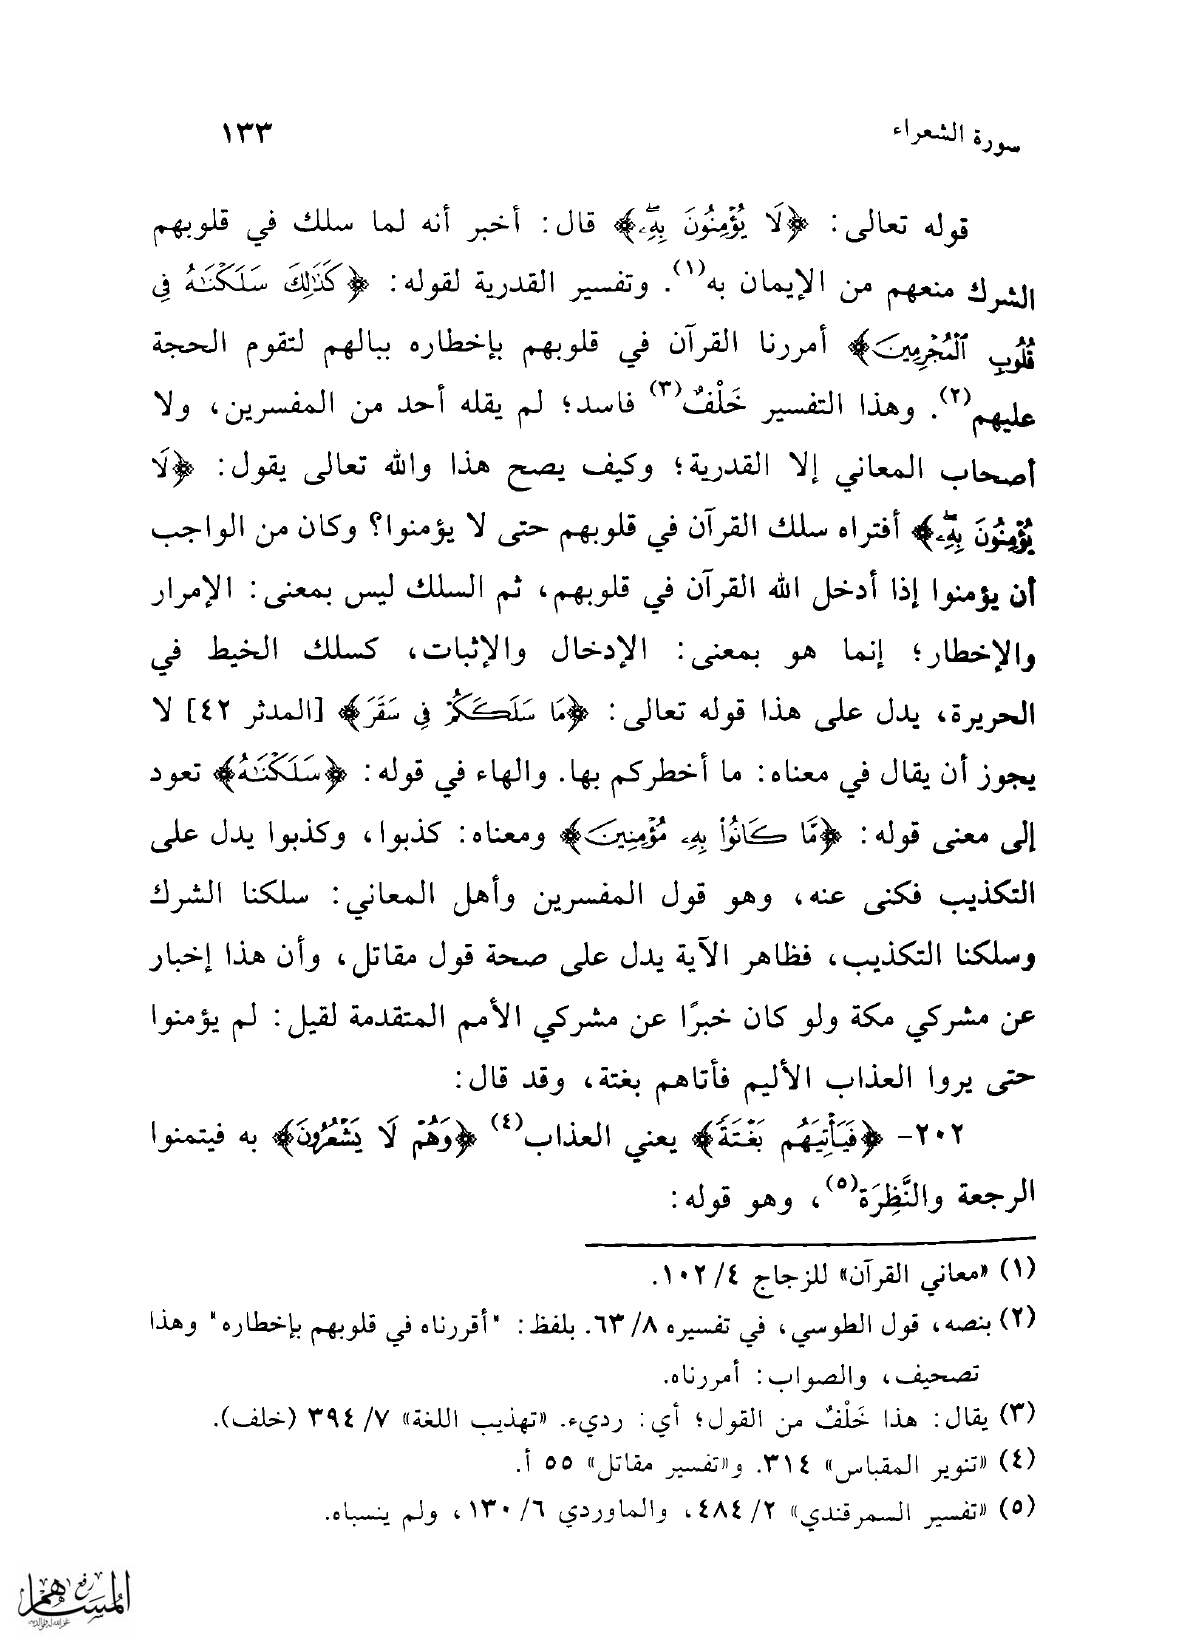 سورة الشعراء
١٣٣
قوله تعالى: ﴿لَا يُؤْمِنُونَ بِهِۦ﴾ قال: أخبر أنه لما سلك في قلوبهم
الشرك منعهم من الإيمان به(١). وتفسير القدرية لقوله: ﴿كَذَٰلِكَ سَلَكْنَٰهُ فِى
قُلُوبِ ٱلْمُجْرِمِينَ﴾ أمررنا القرآن في قلوبهم بإخطاره ببالهم لتقوم الحجة
عليهم(٢). وهذا التفسير خَلْفٌ(٣) فاسد؛ لم يقله أحد من المفسرين، ولا
أصحاب المعاني إلا القدرية؛ وكيف يصح هذا والله تعالى يقول: ﴿لَا
يُؤْمِنُونَ بِهِۦ﴾ أفتراه سلك القرآن في قلوبهم حتى لا يؤمنوا؟ وكان من الواجب
أن يؤمنوا إذا أدخل الله القرآن في قلوبهم، ثم السلك ليس بمعنى: الإمرار
والإخطار؛ إنما هو بمعنى: الإدخال والإثبات، كسلك الخيط في
الحريرة، يدل على هذا قوله تعالى: ﴿مَا سَلَكَكُمْ فِى سَقَرَ﴾ [المدثر ٤٢] لا
يجوز أن يقال في معناه: ما أخطركم بها. والهاء في قوله: ﴿سَلَكْنَٰهُ﴾ تعود
إلى معنى قوله: ﴿مَّا كَانُوا۟ بِهِۦ مُؤْمِنِينَ﴾ ومعناه: كذبوا، وكذبوا يدل على
التكذيب فكنى عنه، وهو قول المفسرين وأهل المعاني: سلكنا الشرك
وسلكنا التكذيب، فظاهر الآية يدل على صحة قول مقاتل، وأن هذا إخبار
عن مشركي مكة ولو كان خبرًا عن مشركي الأمم المتقدمة لقيل: لم يؤمنوا
حتى يروا العذاب الأليم فأتاهم بغتة، وقد قال:
٢٠٢- ﴿فَيَأْتِيَهُم بَغْتَةً﴾ يعني العذاب(٤) ﴿وَهُمْ لَا يَشْعُرُونَ﴾ به فيتمنوا
الرجعة والنَّظِرَة(٥)، وهو قوله:
(١) «معاني القرآن» للزجاج ٤/ ١٠٢.
(٢) بنصه، قول الطوسي، في تفسيره ٨/ ٦٣. بلفظ: "أقررناه في قلوبهم بإخطاره" وهذا
تصحيف، والصواب: أمررناه.
(٣) يقال: هذا خَلْفٌ من القول؛ أي: رديء. «تهذيب اللغة» ٧/ ٣٩٤ (خلف).
(٤) «تنوير المقباس» ٣١٤. و«تفسير مقاتل» ٥٥ أ.
(٥) «تفسير السمرقندي» ٢/ ٤٨٤، والماوردي ٦/ ١٣٠، ولم ينسباه.